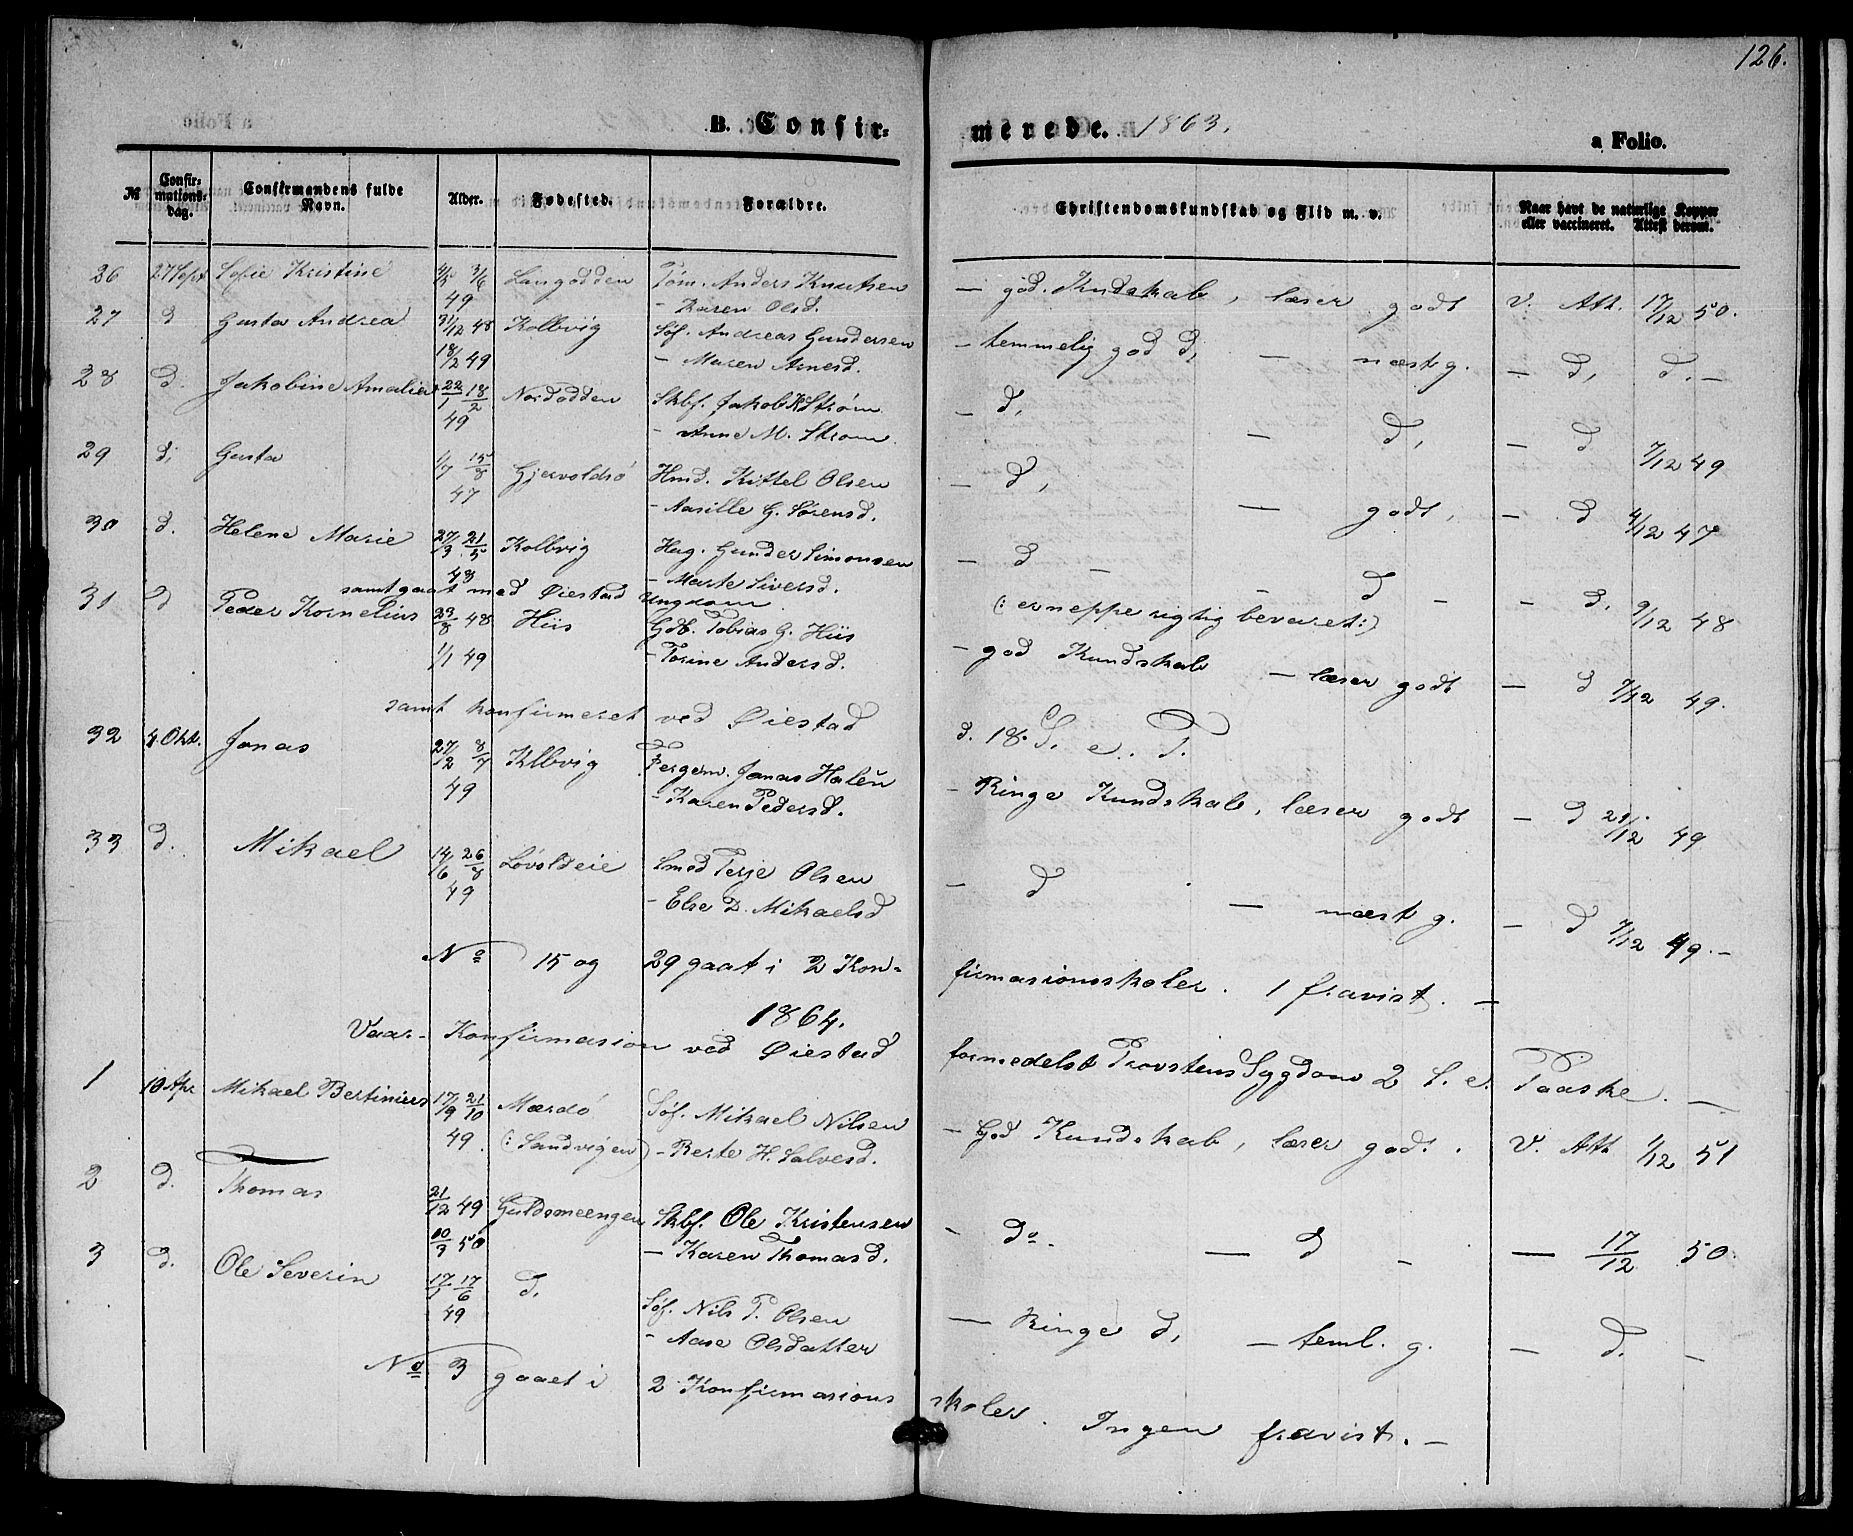 126.
B. Confir-
merede. 1863.
a Folio.
№ Confir-mations-dag. Confirmandens fulde Navn. Alder. Fødested. Forældre. Christendomskundskab og Flid m. v. Naar havt de naturlige Kopper eller vaccineret. Attest derom.
26 27 Sept Sofie Kristine 3/6 Langodden Tøm. Anders Knutsen — god. Kundskab, læser godt V. Att. 17/12 50.
49 - Karen Olsd.
27 d Gusta Andrea 31/12 48 Kolbvig Søf. Andreas Gundersen — temmelig god d, — næst g. — d, d. —
18/2 49 - Maren Arnesd.
28 d. Jakobine Amalie 22/1 18/2 Nordodden Skbf. Jakob K Strøm — d, — d, — d 7/12 49
49 - Anne M. Strøm
29 d. Gusta 1/7 15/8 Gjervoldsø Hmd. Kittel Olsen — d, — godt, — d 4/12 47
47 - Aasille G. Sørensd.
30 d. Helene Marie 27/3 21/5 Kolbvig Hug. Gunder Simonsen — d — — d — — d. 9/12 48
48 - Marte Siversd.
samt gaat med Øiestad Ungdom (: er neppe rigtig bevaret:)
31 d Peder Kornelius 23/8 48 Hiis Gdb. Tobias G. Hiis — god Kundskab — læser godt — d 7/12 49.
1/1 49 - Torine Andersd.
samt konfirmeret ved Øiestad d. 18. S. e. T.
32 4. Okt. Jonas 27/2 8/7 Klbvig Fergem. Jonas Halén — Ringe Kundskab, læser godt — d 21/12 49
49 - Karen Pedersd.
33 d. Mikael 14/6 26/8 Løvoldeie Smed Terje Olsen — d — næst g. — d 7/12 49. —
49 - Else D. Mikaelsd
No 15 og 29 gaat i 2 Konfirmasionsskoler. 1 fravist. —
1864.
Vaar - Konfirmasion ved Øiestad formedelst Provstens Sygdom 2 S. e. Paaske. —
1 10 Apr Mikael Bertinius 17/9 21/10 Mærdø Søf. Mikael Nilsen — God Kundskab, læser god. . V. Att 1/12 51
49. (: Sandvigen) - Berte H. Salvesd.
2 d. Thomas 21/12 49 Guldsmeengen Skbf. Ole Kristensen — do. — d — — 17/12 50
10/3 50 — Karen Thomasd.
3 d. Ole Severin 17/6 d. Søf. Nils T. Olsen — Ringe d, — teml. g. — d. —
49 - Aase Olsdatter
No 3 gaaet i 2 Konfirmasions skoler. Ingen fravist. —